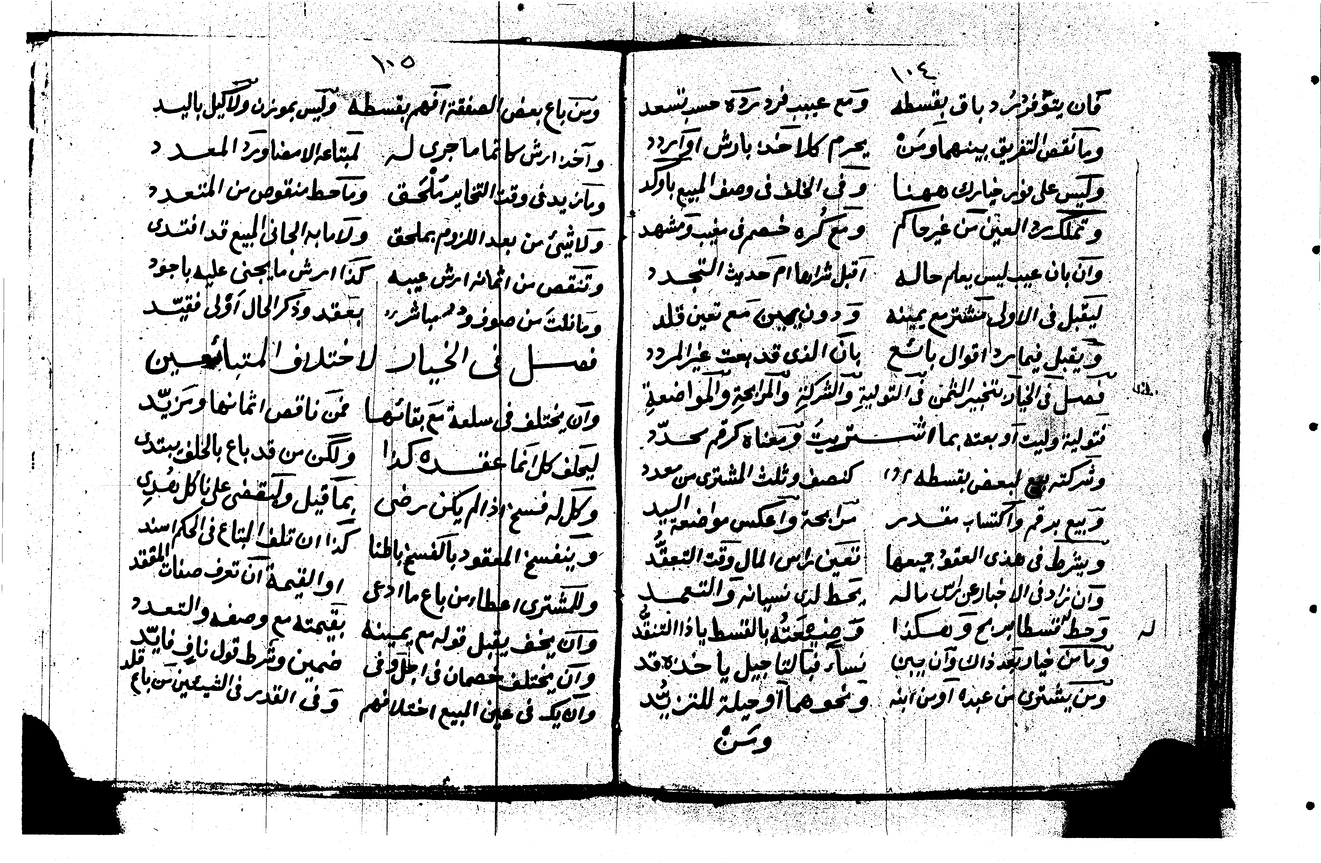 ١٠٤
كان يتوفر د باق بقسطه ومع عيب فرد رده حسب تسعد
وما نقص التفريق بينهما ومن يحرم كلا خذه بارش او اردد
وليس على فور خيارك ههنا وفي الخلف في وصف المبيع باوكد
وتملك رد العين من غير حاكم ومع كره خصم في مغيب ومشهد
وان بان عيب ليس يعلم حاله اقبل شراها ام حديث التجدد
ليقبل في الاولى مشتر مع يمينه و دون يمين مع تعين قلد
ويقبل فيما رد اقوال بائع بان الذي قد بعت غير المردد
فصل في الخيار بتخبير الثمن في التولية والشركة والمرابحة والمواضعة
فتولية وليت او بعته بما اشتريت ومعناه كرقم محدد
وشركته بيع لبعض بقسطه كنصف وثلث المشتري من معدد
وبيع برقم واكتساب مقدر مرابحة واعكس مواضعة اليد
ويشرط في هذي العقود جميعها تعين راس المال وقت التعقد
وان زاد في الاخبار عن راس ماله يحط لدى نسيانه والتعمد
وحط قسطا من ربح وهكذا وضيعته بالقسط ياذا التنقد
وما من خيار بعد ذاك وان يبن نسا فبالتاجيل ياخذه قد
ومن يشتري من عبده او من ابنه ونحوهما او حيلة للتزيد
ومن
له
١٠٥
ومن باع بعض الصفقة افهم بقسطه وليس بموزن ولا كيل باليد
واخذ ارش كاتما ما جرى له لمبتاعه الامضا ورد المعدد
وما زيد في وقت التخاير ملحق وما حط منقوص من المتعدد
ولا شيء من بعد اللزوم بملحق ولا ما به الجاني المبيع قد افتدى
وتنقص من اثمانه ارش عيبه كذا ارش ما يجنى عليه باجود
وما نلت من صوف و در مباشر بعقد وذكر الحال اولى فقيد
فصل في الخيار لاختلاف المتبائعين
وان يختلف في سلعة مع بقائها فمن ناقص اثمانها ومزيد
ليحلف كل انما عقده كذا ولكن من قد باع بالحلف يبتدي
وكل له فسخ اذا لم يكن رضى بما قيل والمقضى على ناكل نهدي
وينفسخ المعقود بالفسخ باطنا كذا ان تلف المتاع في الحكم اسند
وللمشتري اعطاء من باع ما ادعى او القيمة ان تعرف صفات المفقد
وان يخف يقبل قوله مع يمينه بقيمته مع وصفه والتعدد
وان يختلف خصمان في اجل وفي ضمين وشرط قول ناف فايد
وان يك في عين المبيع اختلافهم وفي القدر في الشيئين من باع قلد